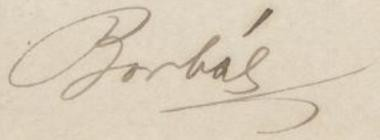 Borbás